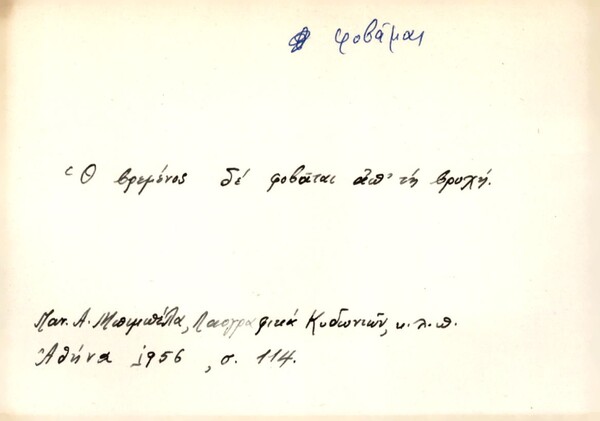 φοβᾶμαι
Ὁ βρεμένος δέ φοβᾶται ἀπ' τή βροχή.
Παν. Α. Μπιμπέλα, Λαογραφικά Κυδωνιῶν, κ.λ.π.
Ἀθήνα 1956, σ. 114.